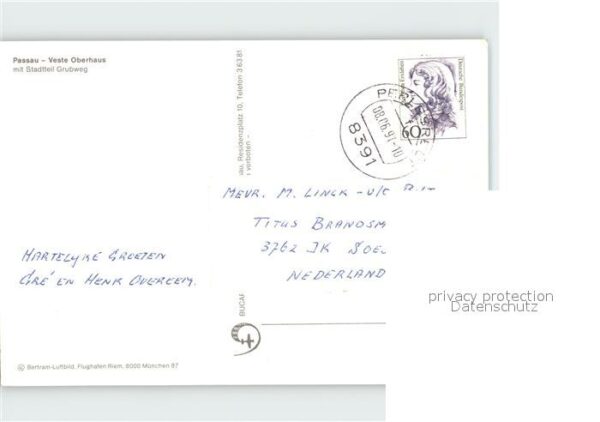 Passau – Veste Oberhaus
mit Stadtteil Grubweg
au, Residenzplatz 10, Telefon 3 63 81
verboten –
BUCAR
Deutsche Bundespost
60
8391
08.06.91-10
MEVR. M. LINCK - v/c
TITUS BRANDSM
3762 JK SOE
NEDERLAND
HARTELYKE GROETEN
GRÉ EN HENK OVEREEM.
privacy protection
Datenschutz
© Bertram-Luftbild, Flughafen Riem, 8000 München 87